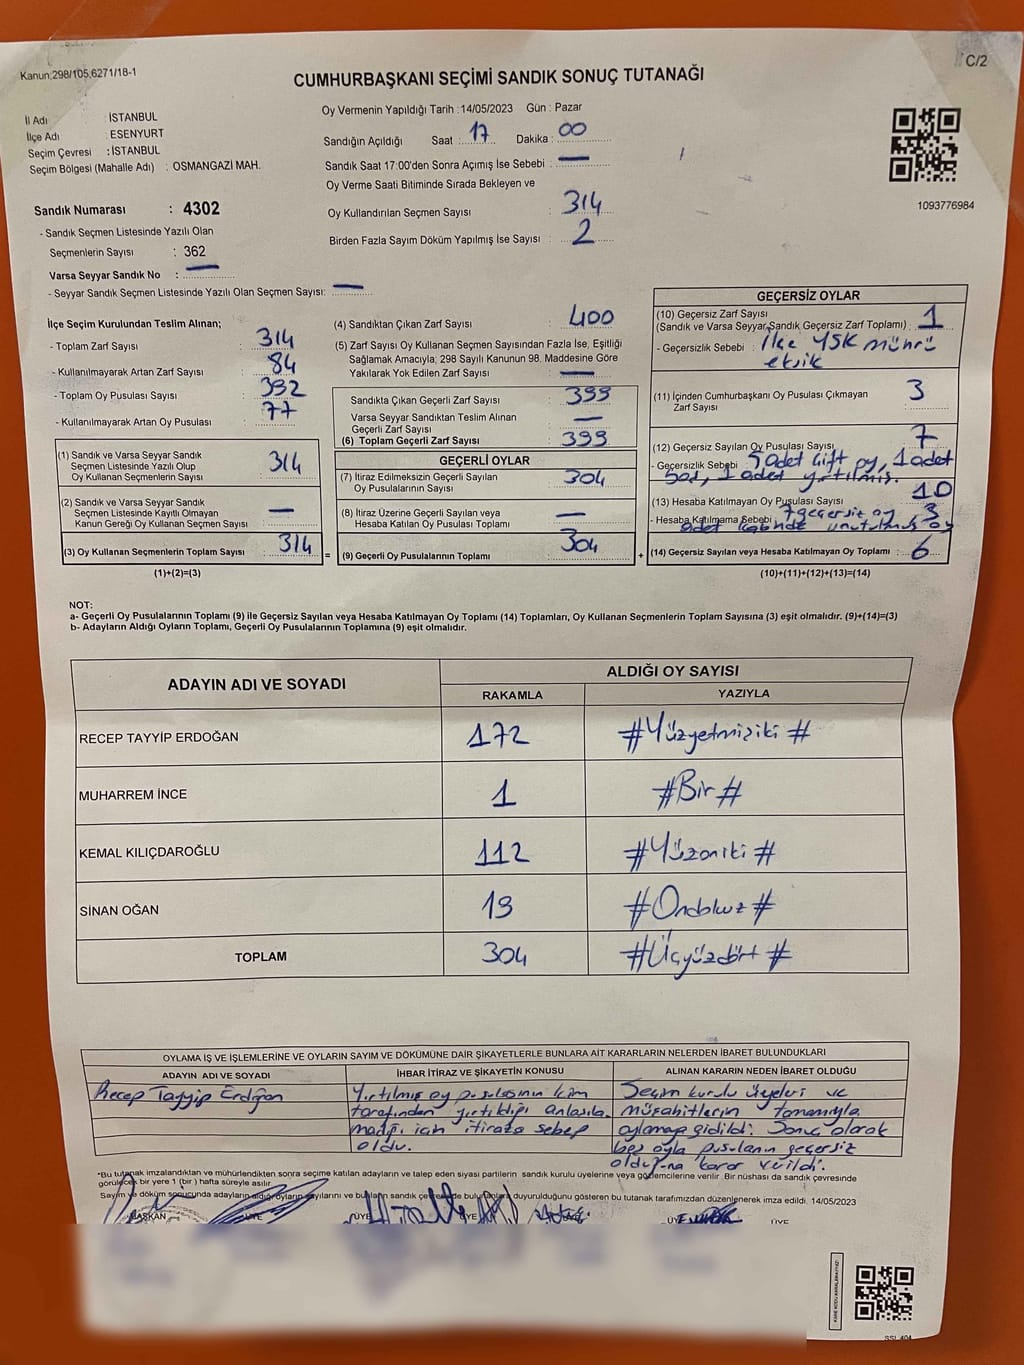 Kanun;298/105,6271/18-1
C/2
CUMHURBAŞKANI SEÇİMİ SANDIK SONUÇ TUTANAĞI
İl Adı : İSTANBUL
İlçe Adı : ESENYURT
Seçim Çevresi : İSTANBUL
Seçim Bölgesi (Mahalle Adı) : OSMANGAZİ MAH.
Sandık Numarası : 4302
- Sandık Seçmen Listesinde Yazılı Olan
Seçmenlerin Sayısı : 362
Varsa Seyyar Sandık No : —
- Seyyar Sandık Seçmen Listesinde Yazılı Olan Seçmen Sayısı: —
Oy Vermenin Yapıldığı Tarih :14/05/2023 Gün : Pazar
Sandığın Açıldığı Saat : 17 Dakika : 00
Sandık Saat 17:00'den Sonra Açımış İse Sebebi : —
Oy Verme Saati Bitiminde Sırada Bekleyen ve
Oy Kullandırılan Seçmen Sayısı : 314
Birden Fazla Sayım Döküm Yapılmış İse Sayısı : 2
1093776984
İlçe Seçim Kurulundan Teslim Alınan;
- Toplam Zarf Sayısı : 314
- Kullanılmayarak Artan Zarf Sayısı : 84
- Toplam Oy Pusulası Sayısı : 392
- Kullanılmayarak Artan Oy Pusulası : 77
(1) Sandık ve Varsa Seyyar Sandık
Seçmen Listesinde Yazılı Olup
Oy Kullanan Seçmenlerin Sayısı : 314
(2) Sandık ve Varsa Seyyar Sandık
Seçmen Listesinde Kayıtlı Olmayan
Kanun Gereği Oy Kullanan Seçmen Sayısı : —
(3) Oy Kullanan Seçmenlerin Toplam Sayısı : 314
(1)+(2)=(3)
(4) Sandıktan Çıkan Zarf Sayısı : 400
(5) Zarf Sayısı Oy Kullanan Seçmen Sayısından Fazla İse, Eşitliği
Sağlamak Amacıyla; 298 Sayılı Kanunun 98. Maddesine Göre
Yakılarak Yok Edilen Zarf Sayısı : —
Sandıkta Çıkan Geçerli Zarf Sayısı : 399
Varsa Seyyar Sandıktan Teslim Alınan
Geçerli Zarf Sayısı : —
(6) Toplam Geçerli Zarf Sayısı : 399
GEÇERLİ OYLAR
(7) İtiraz Edilmeksizin Geçerli Sayılan
Oy Pusulalarının Sayısı : 304
(8) İtiraz Üzerine Geçerli Sayılan veya
Hesaba Katılan Oy Pusulası Toplamı : —
= (9) Geçerli Oy Pusulalarının Toplamı : 304 +
GEÇERSİZ OYLAR
(10) Geçersiz Zarf Sayısı
(Sandık ve Varsa Seyyar Sandık Geçersiz Zarf Toplamı) : 1
- Geçersizlik Sebebi : İlçe YSK mührü
eksik
(11) İçinden Cumhurbaşkanı Oy Pusulası Çıkmayan
Zarf Sayısı : 3
(12) Geçersiz Sayılan Oy Pusulası Sayısı : 7
- Geçersizlik Sebebi : 5 adet çift oy, 1 adet
boş, 1 adet yırtılmış.
(13) Hesaba Katılmayan Oy Pusulası Sayısı : 10
- Hesaba Katılmama Sebebi : 7 geçersiz oy, 3
adet kabinde unutulmuş oy
(14) Geçersiz Sayılan veya Hesaba Katılmayan Oy Toplamı : 6
(10)+(11)+(12)+(13)=(14)
NOT:
a- Geçerli Oy Pusulalarının Toplamı (9) ile Geçersiz Sayılan veya Hesaba Katılmayan Oy Toplamı (14) Toplamları, Oy Kullanan Seçmenlerin Toplam Sayısına (3) eşit olmalıdır. (9)+(14)=(3)
b- Adayların Aldığı Oyların Toplamı, Geçerli Oy Pusulalarının Toplamına (9) eşit olmalıdır.
ADAYIN ADI VE SOYADI ALDIĞI OY SAYISI
RAKAMLA YAZIYLA
RECEP TAYYİP ERDOĞAN 172 #Yüzyetmişiki#
MUHARREM İNCE 1 #Bir#
KEMAL KILIÇDAROĞLU 112 #Yüzoniki#
SİNAN OĞAN 19 #Ondokuz#
TOPLAM 304 #Üçyüzdört#
OYLAMA İŞ VE İŞLEMLERİNE VE OYLARIN SAYIM VE DÖKÜMÜNE DAİR ŞİKAYETLERLE BUNLARA AİT KARARLARIN NELERDEN İBARET BULUNDUKLARI
ADAYIN ADI VE SOYADI İHBAR İTİRAZ VE ŞİKAYETİN KONUSU ALINAN KARARIN NEDEN İBARET OLDUĞU
Recep Tayyip Erdoğan Yırtılmış oy pusulasının kim Seçim kurulu üyeleri ve
tarafından yırtıldığı anlaşıla müşahitlerin tamamıyla
madığı için itiraza sebep oylamaya gidildi. Sonuç olarak
oldu. beş oyla pusulanın geçersiz
olduğuna karar verildi.
*Bu tutanak imzalandıktan ve mühürlendikten sonra seçime katılan adayların ve talep eden siyasi partilerin sandık kurulu üyelerine veya gözlemcilerine verilir. Bir nüshası da sandık çevresinde
görülecek bir yere 1 (bir) hafta süreyle asılır.
Sayım ve döküm sonucunda adayların aldığı oyların sayılarını ve bunları sandık çevresinde bulunanlara duyurulduğunu gösteren bu tutanak tarafımızdan düzenlenerek imza edildi. 14/05/2023
BAŞKAN ÜYE ÜYE ÜYE ÜYE ÜYE ÜYE